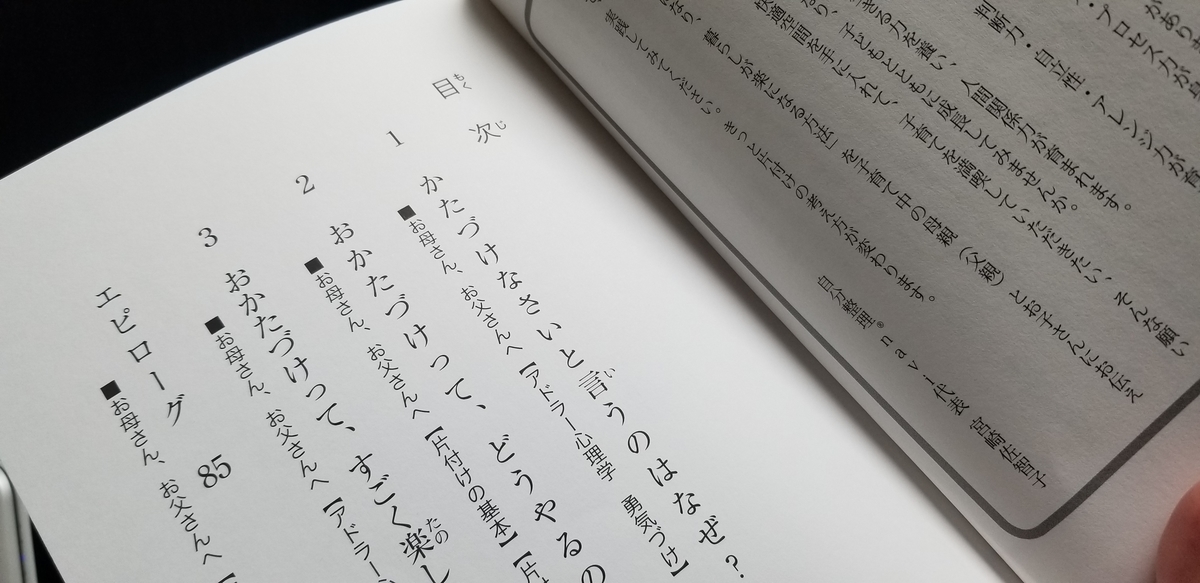 があり
・プロセス力が身
判断力・自立性・アレンジ力が育
きる力を養い、人間関係力が育まれます。
なり、子どもとともに成長してみませんか。
快適空間を手に入れて、子育てを満喫していただきたい、そんな願い
になり、暮らしが楽になる方法」を子育て中の母親（父親）とお子さんにお伝え
実践してみてください。きっと片付けの考え方が変わります。
自分整理®navi代表 宮崎佐智子
目次
もくじ
1 かたづけなさいと言うのはなぜ？
い
■お母さん、お父さんへ【アドラー心理学 勇気づけ】
2 おかたづけって、どうやるの
■お母さん、お父さんへ【片付けの基本】【片
3 おかたづけって、すごく楽し
たの
■お母さん、お父さんへ【アドラー心
エピローグ 85
■お母さん、お父さんへ【